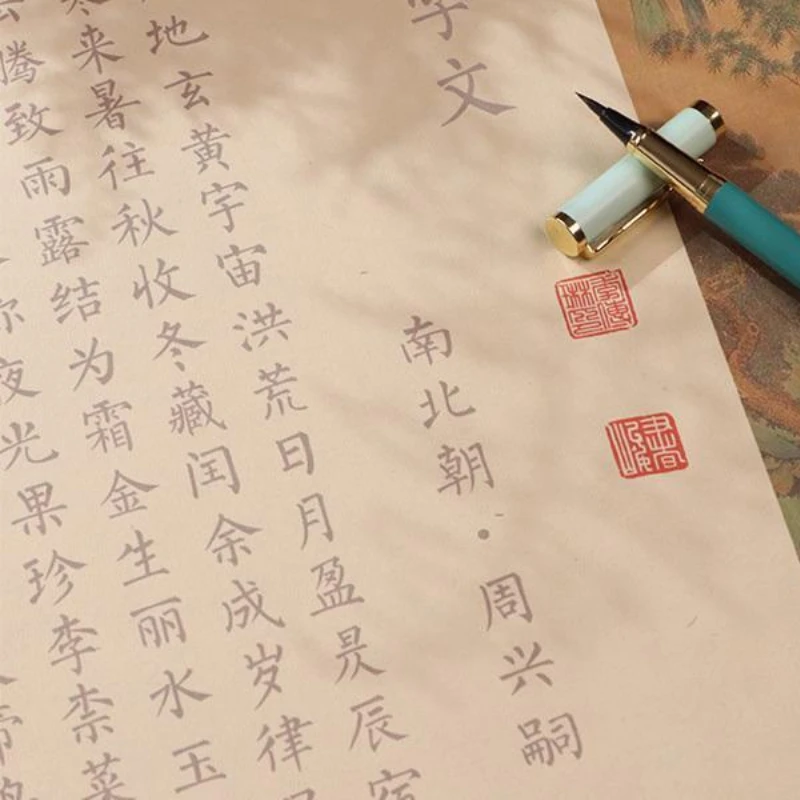 字文
南北朝·周兴嗣
地玄黄宇宙洪荒日月盈昃辰宿
寒来暑往秋收冬藏闰余成岁律
云腾致雨露结为霜金生丽水玉
称夜光果珍李柰菜
帝